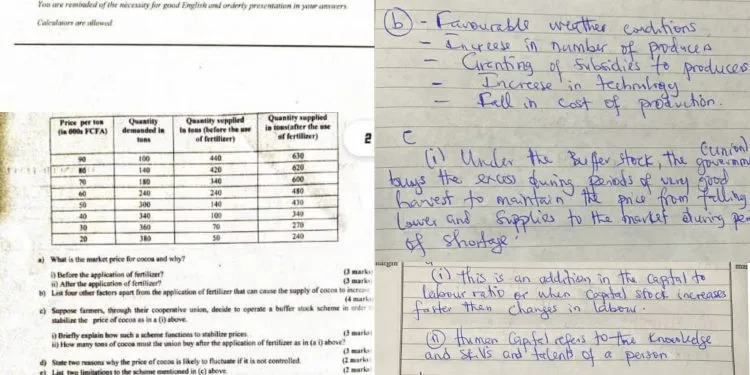 You are reminded of the necessity for good English and orderly presentation in your answers.
Calculators are allowed
Price per ton (in 000s FCFA) Quantity demanded in tons Quantity supplied in tons (before the use of fertilizer) Quantity supplied in tons(after the use of fertilizer)
90 100 440 630
80 140 420 620
70 180 340 600
60 240 240 480
50 300 140 430
40 340 100 340
30 360 70 270
20 380 50 240
2
a) What is the market price for cocoa and why?
i) Before the application of fertilizer? (3 marks
ii) After the application of fertilizer? (3 marks
b) List four other factors apart from the application of fertilizer that can cause the supply of cocoa to increase
(4 marks
c) Suppose farmers, through their cooperative union, decide to operate a buffer stock scheme in order to
stabilize the price of cocoa as in (i) above.
i) Briefly explain how such a scheme functions to stabilize prices. (3 marks
ii) How many tons of cocoa must the union buy after the application of fertilizer as in (a i) above?
(3 marks
d) State two reasons why the price of cocoa is likely to fluctuate if it is not controlled. (2 marks
e) List two limitations to the scheme mentioned in (c) above. (2 marks
(b) - Favourable weather conditions
- Increase in number of producers
- Granting of subsidies to producers
- Increase in technology
- Fall in cost of production.
C
(i) Under the Buffer stock, the (union) governm
buys the excess during periods of very good
harvest to maintain the price from falling
Lower and supplies to the market during pe
of shortage.
(i) this is an addition in the capital to
labour ratio or when capital stock increases
faster than changes in labour.
(ii) Human Capital refers to the knowledge
and skills and talents of a person